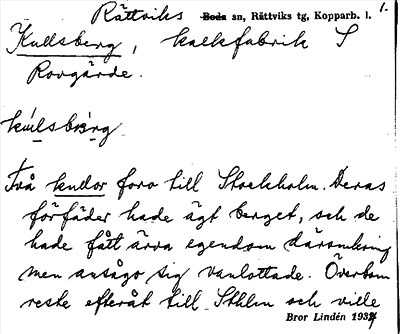 Rättviks Boda sn, Rättviks tg, Kopparb. l. 1.
Kullsberg, kalkfabrik S
Rovgärde.
kúlsbärg
Två kullor foro till Stockholm. Deras
förfäder hade ägt berget, och de
hade fått ärva egendom däromkring
men ansågo sig vanlottade. Överbom
reste efteråt till Sthlm och ville
Bror Lindén 1934